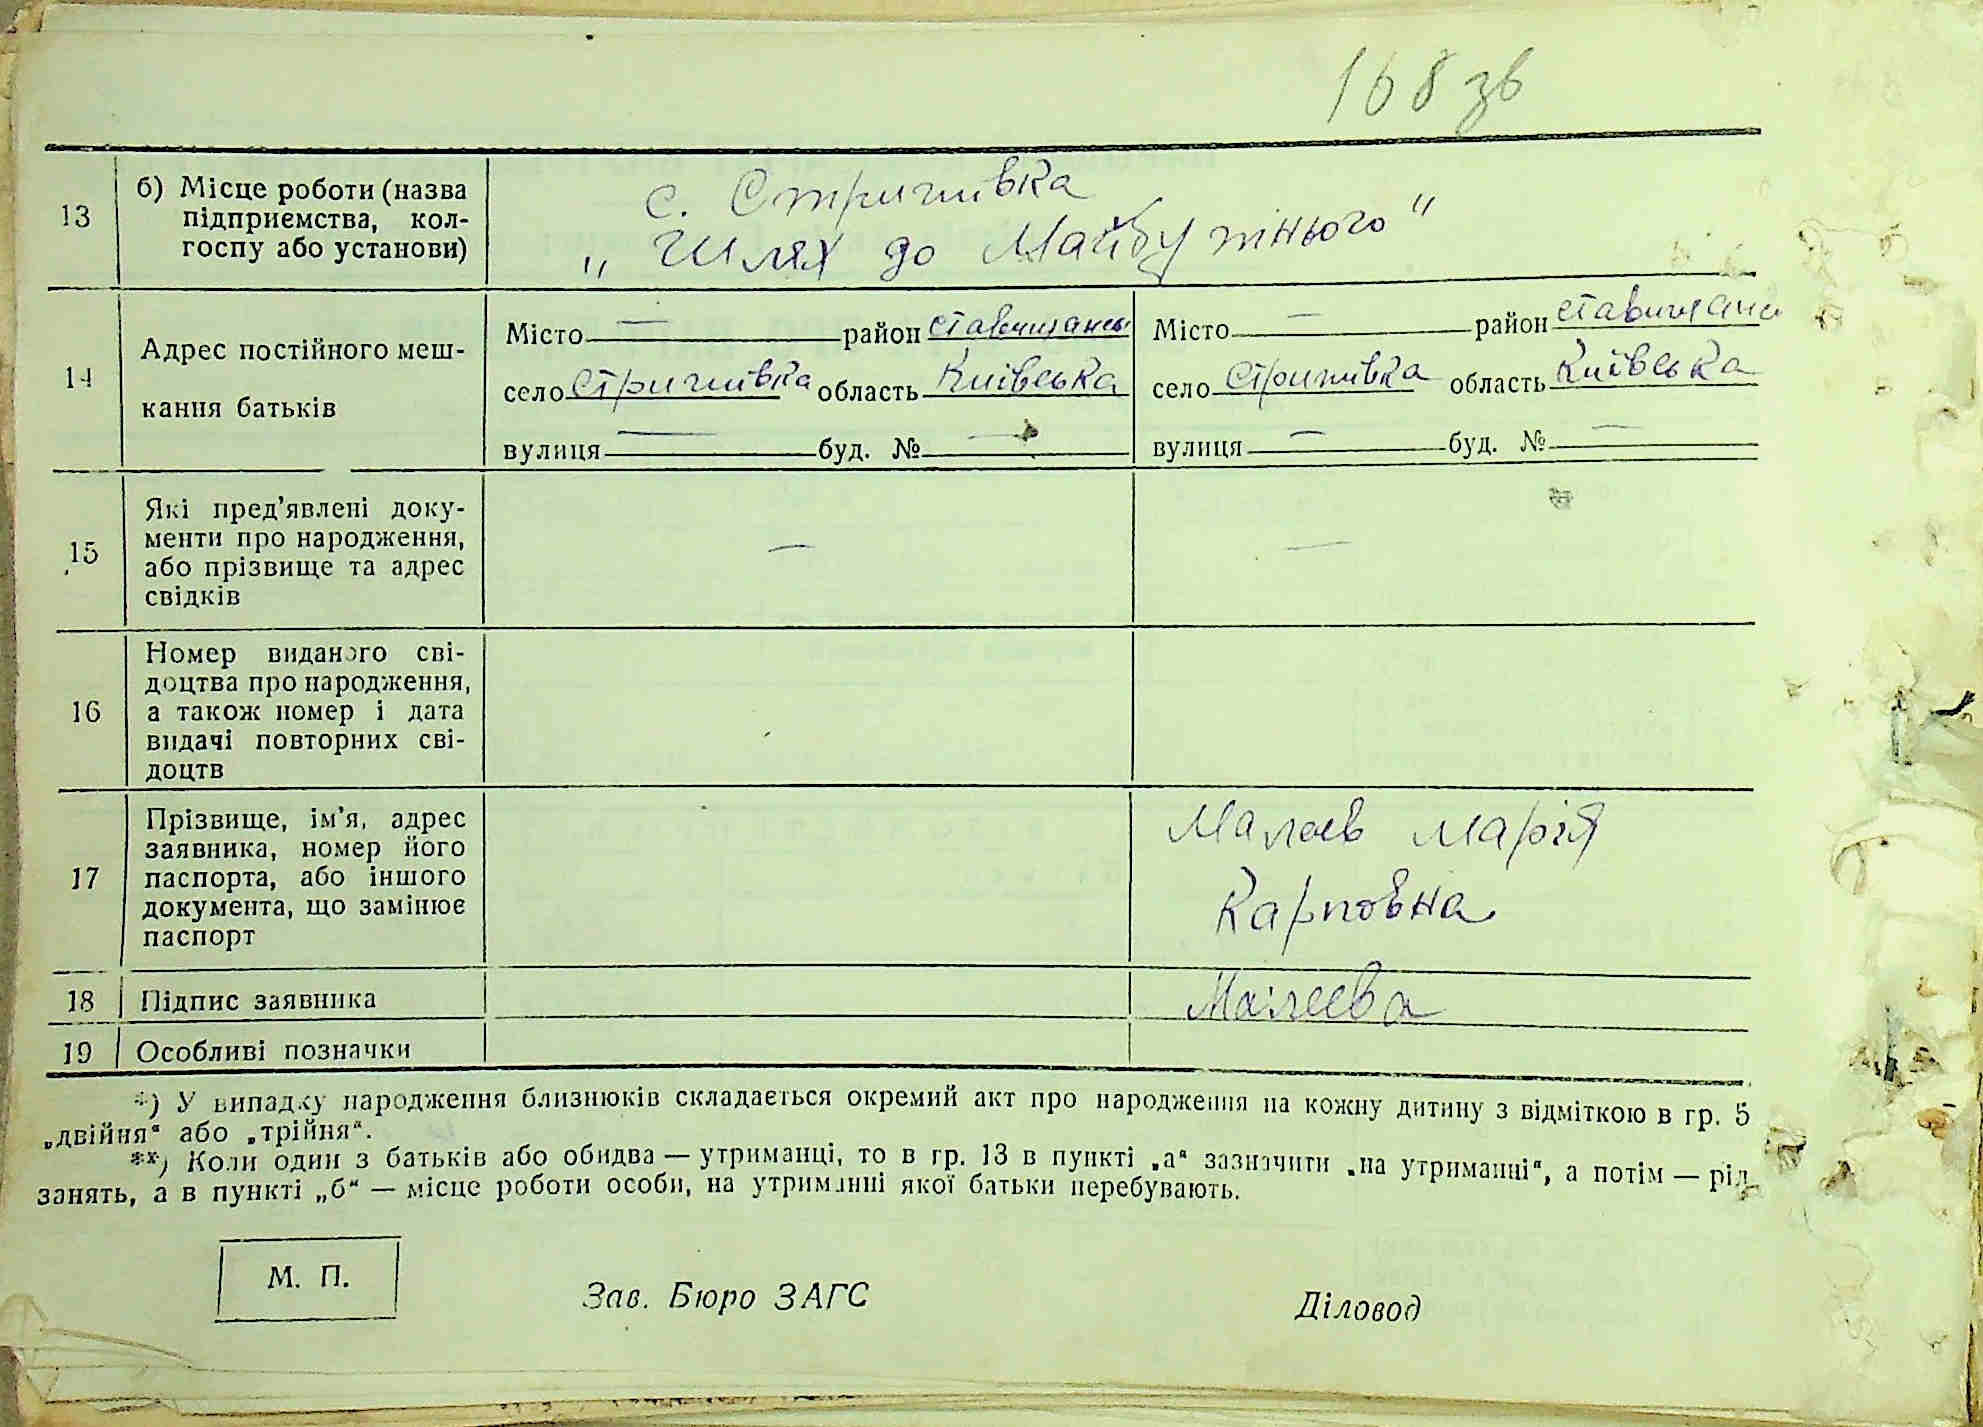 168 зв
13
б) Місце роботи (назва
підприємства, кол-
госпу або установи)
с. Стрижівка
„ Шлях до Майбутнього "
14
Адрес постійного меш-
кання батьків
Місто — район Ставищанськ
село Стрижівка область Київська
вулиця — буд. № —
Місто — район Ставищансь
село Стрижівка область Київська
вулиця — буд. № —
15
Які пред'явлені доку-
менти про народження,
або прізвище та адрес
свідків
—
—
16
Номер виданого сві-
доцтва про народження,
а також номер і дата
видачі повторних сві-
доцтв
17
Прізвище, ім'я, адрес
заявника, номер його
паспорта, або іншого
документа, що замінює
паспорт
Малєєв Марія
Карповна
18
Підпис заявника
Малеева
19
Особливі позначки
*) У випадку народження близнюків складається окремий акт про народження на кожну дитину з відміткою в гр. 5
„двійня" або „трійня".
**) Коли один з батьків або обидва — утриманці, то в гр. 13 в пункті „а" зазначити „на утриманні", а потім — рід
занять, а в пункті „б" — місце роботи особи, на утриманні якої батьки перебувають.
М. П.
Зав. Бюро ЗАГС
Діловод